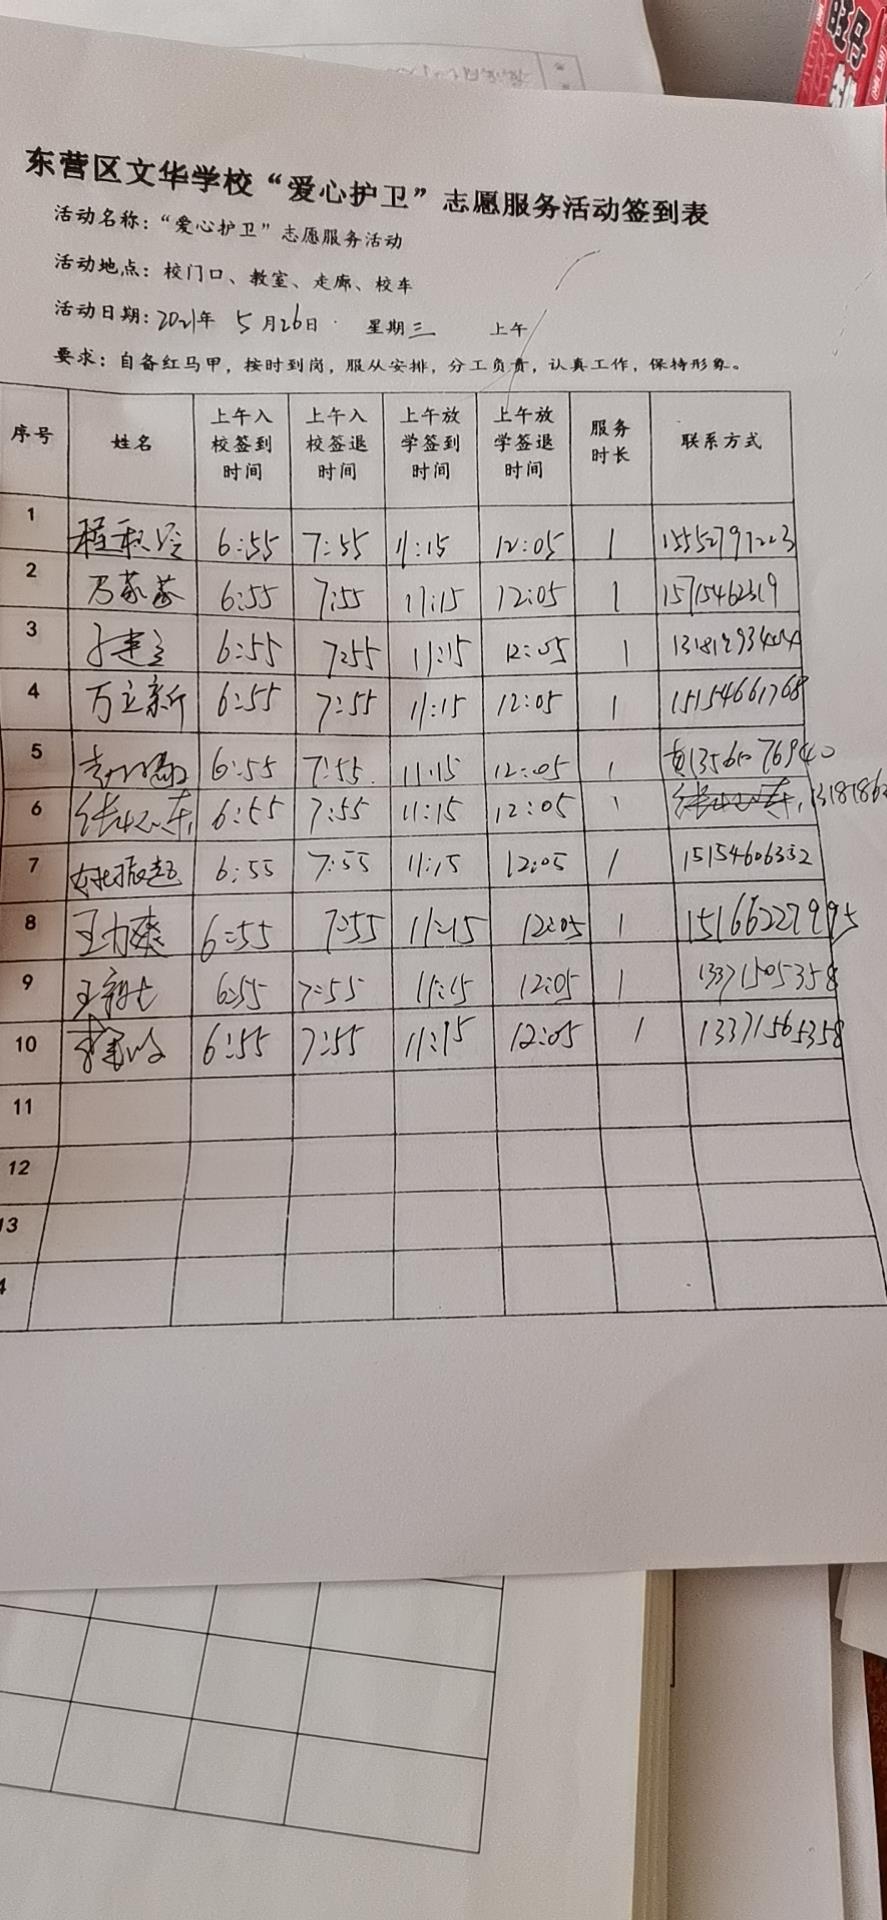 旺仔
东营区文华学校“爱心护卫”志愿服务活动签到表
活动名称：“爱心护卫”志愿服务活动
活动地点：校门口、教室、走廊、校车
活动日期：2021年 5月26日 星期三 上午
要求：自备红马甲，按时到岗，服从安排，分工负责，认真工作，保持形象。
序号 姓名 上午入校签到时间 上午入校签退时间 上午放学签到时间 上午放学签退时间 服务时长 联系方式
1 6:55 7:55 11:15 12:05 1 15552791223
2 6:55 7:55 11:15 12:05 1 15715462319
3 6:55 7:55 11:15 12:05 1
4 万立新 6:55 7:55 11:15 12:05 1 15154661768
5 6:55 7:55 11:15 12:05 1
6 6:55 7:55 11:15 12:05 1
7 6:55 7:55 11:15 12:05 1 15154606332
8 王力爽 6:55 7:55 11:15 12:05 1 15166227995
9 6:55 7:55 11:15 12:05 1 13371505358
10 6:55 7:55 11:15 12:05 1 13371565358
11
12
13
4